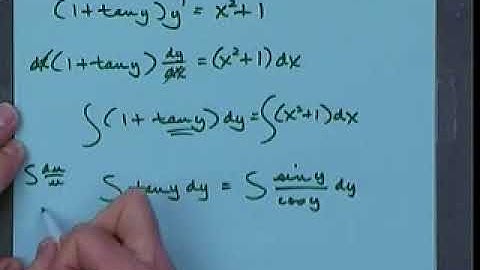 (1 + tan y) y' = x² + 1
dx (1 + tan y) dy/dx = (x² + 1) dx
∫ (1 + tan y) dy = ∫ (x² + 1) dx
∫ du/u ∫ tan y dy = ∫ sin y/cos y dy